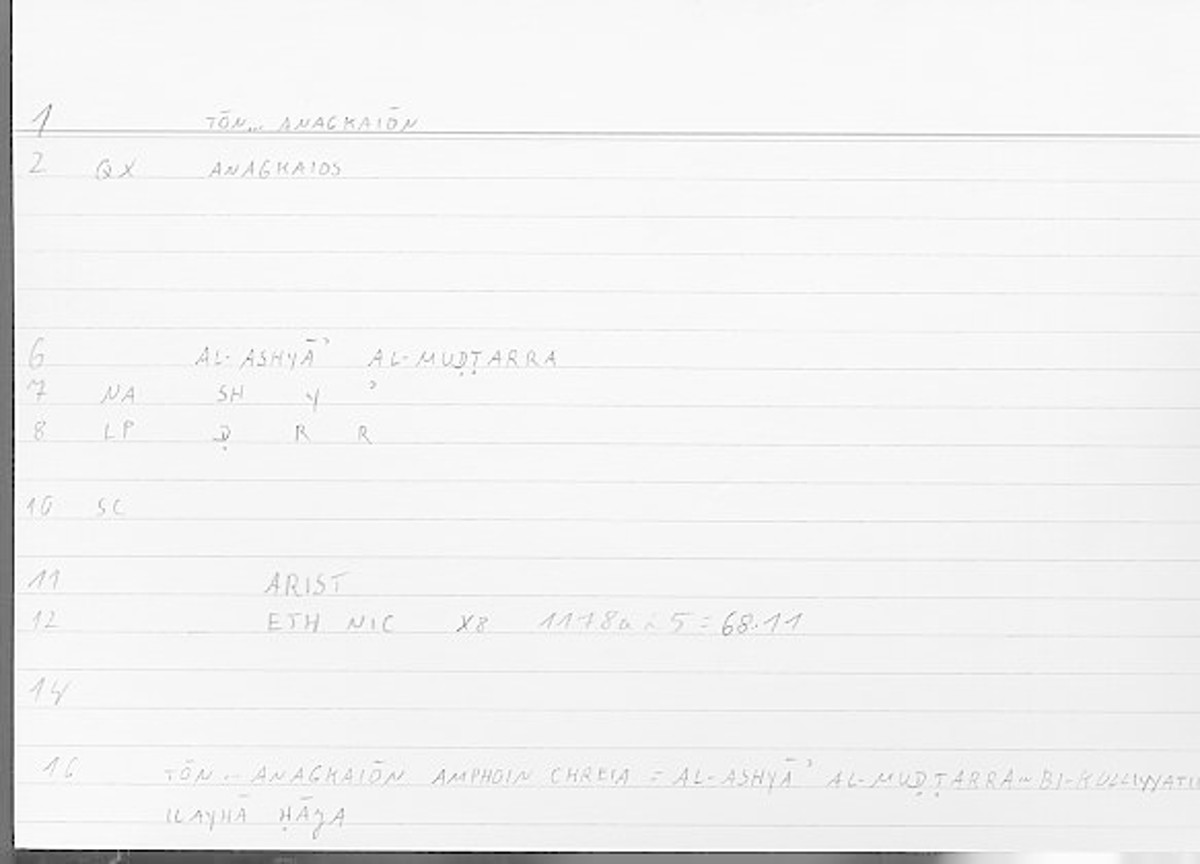 1 TŌN... ANAGKAIŌN
2 QX ANAGKAIOS
6 AL-ASHYĀʾ AL-MUḌṬARRA
7 NA SH Y ʾ
8 LP Ḍ R R
10 SC
11 ARIST
12 ETH NIC X8 1178a 25 = 68.11
14
16 TŌN... ANAGKAIŌN AMPHOIN CHREIA = AL-ASHYĀʾ AL-MUḌṬARRA... BI-KULLIYYATI
ILAYHĀ ḤĀJA